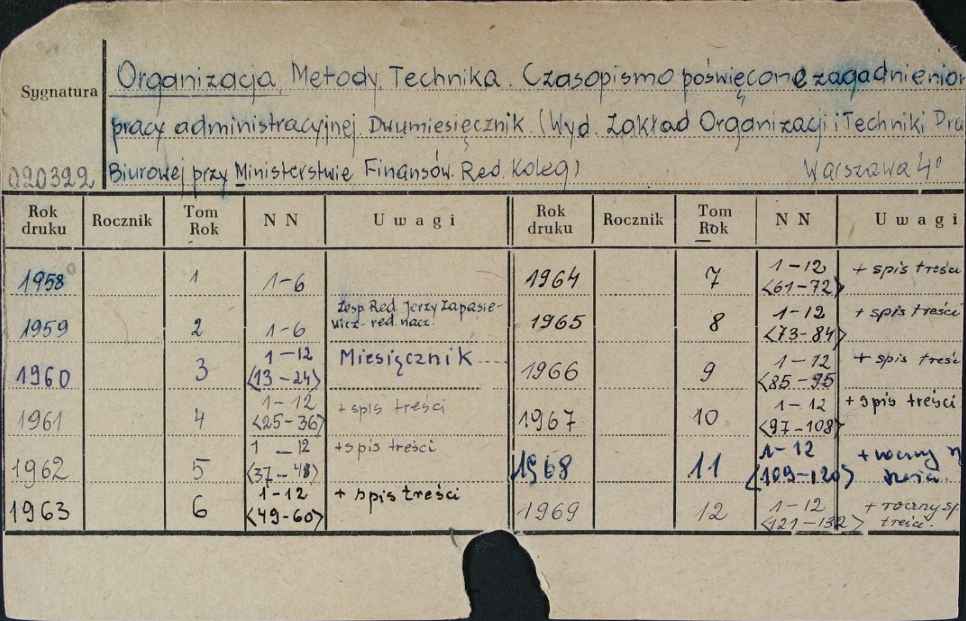 Sygnatura
Organizacja, Metody, Technika. Czasopismo poświęcone zagadnieniom
pracy administracyjnej Dwumiesięcznik. (Wyd. Zakład Organizacji i Techniki Pra
020322 Biurowej przy Ministerstwie Finansów. Red. Koleg) Warszawa 4°
Rok druku Rocznik Tom Rok N N Uwagi Rok druku Rocznik Tom Rok N N Uwagi
1958 1 1-6 1964 7 1-12 <61-72> + spis treści
1959 2 1-6 Zesp. Red. Jerzy Zapasiewicz - red. nacz. 1965 8 1-12 <73-84> + spis treści
1960 3 1-12 <13-24> Miesięcznik 1966 9 1-12 <85-95 + spis treści
1961 4 1-12 <25-36> + spis treści 1967 10 1-12 <97-108> + spis treści
1962 5 1-12 <37-48> + spis treści 1968 11 1-12 <109-120> + roczny
1963 6 1-12 <49-60> + spis treści 1969 12 1-12 <121-132> + roczny sp treści.